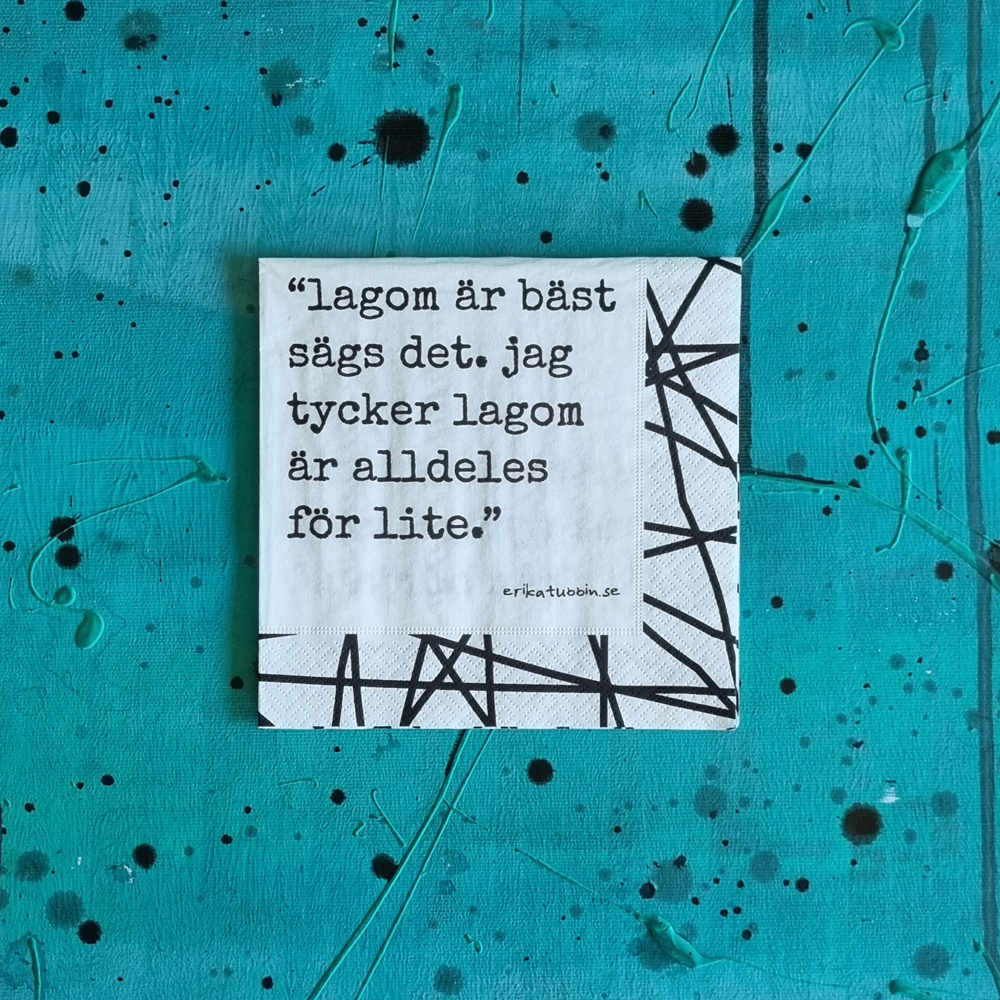 “lagom är bäst
sägs det. jag
tycker lagom
är alldeles
för lite.”
erikatubbin.se